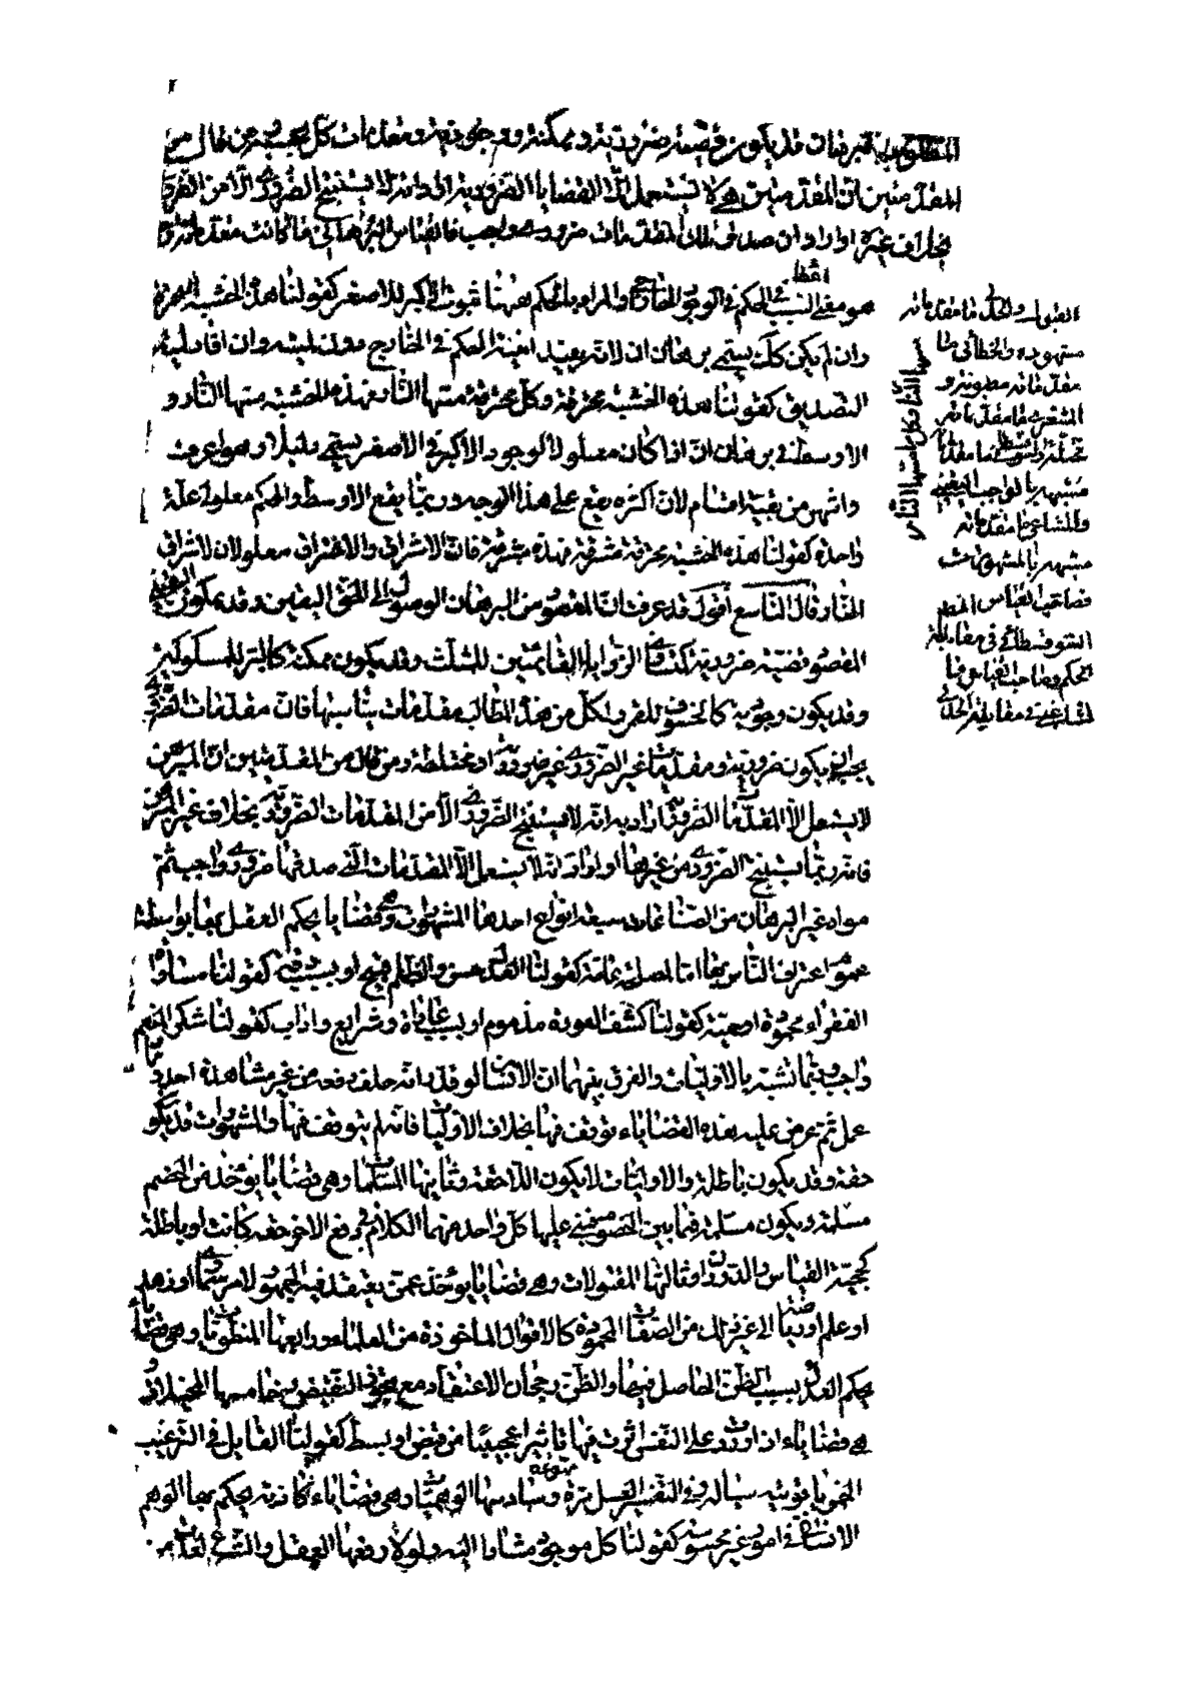 ٢
المطلوب بالبرهان قد يكون قضية ضرورية وممكنة ووجودية ومقدمات كل بحسبه ومن قال من
المقدمين ان المقدمين هى لا يستعمل الا القضايا الضرورية اراد انه لا يستنتج الضرورى الا من الضرورى
بخلاف غيره او اراد ان صدق تلك المقدمات ضرورى واجب فالقياس البرهانى ما كانت مقدماته
هو معطى السبب الحكم فى الوجود الخارجى والمراد بالحكم ههنا ثبوت الاكبر للاصغر كقولنا هذه الخشبة
وان لم يكن كذلك يسمى برهان ان لانه يفيد انية الحكم فى الخارج دون لميته وان افاد لمية
التصديق كقولنا هذه الخشبة محرقة وكل محرقة مستها النار فهذه الخشبة مستها النار و
الاوسط فى برهان ان اذا كان معلولا لوجود الاكبر فى الاصغر يسمى دليلا وهو اعرف
واشهر من بقية اقسام لان اكثره يقع على هذا الوجه وربما يقع الاوسط والحكم معلولى علة
واحدة كقولنا هذه الخشبة محرقة مشرقة فهذه مشرقة فان الاشراق والاحتراق معلولان لاشراق
النار قال التاسع اقول قد عرفت ان المقصود من البرهان الوصول الى الحق اليقين وقد يكون
المقصود قضية ضرورية ككون الزوايا القائمتين للمثلث وقد يكون ممكنة كالبرء للمسلولين
وقد يكون وجودية كالخسوف للقمر ولكل من هذه المطالب مقدمات يناسبها فان مقدمات الضرورى
يجب ان يكون ضرورية ومقدمات غير الضرورى غير ضرورية او مختلطة ومن قال من المقدمين ان المبرهن
لا يستعمل الا المقدمات الضرورية اراد به انه لا يستنتج الضرورى الا من المقدمات الضرورية بخلاف غير المبرهن
فانه ربما يستنتج الضرورى من غيرها او اراد انه لا يستعمل الا المقدمات التى صدقها ضرورى واجب ثم
مواد غير البرهان من الصناعات سبعة انواع احدها المشهورات وهى قضايا يحكم العقل بها بواسطة
عموم اعتراف الناس بها اما لمصلحة عامة كقولنا العدل حسن والظلم قبيح او بسبب رقة كقولنا مساواة
الفقراء محمودة او حمية كقولنا كشف العورة مذموم او بسبب عادات وشرايع واداب كقولنا شكر المنعم
واجب وربما تشتبه بالاوليات والفرق بينهما ان الانسان لو قدر انه خلق دفعة من غير مشاهدة احد و
عمل ثم عرض عليه هذه القضاياء توقف فيها بخلاف الاوليات فانه لم يتوقف فيها والمشهورات قد يكون
حقة وقد يكون باطلة والاوليات لا يكون الا حقة وثانيها المسلمات وهى قضايا يؤخذ من الخصم
مسلمة ويكون مسلمة فيما بين الخصوم فيبنى عليها كل واحد منهما الكلام فى دفع الاخر حقة كانت او باطلة
كحجية القياس والدوران وثالثها المقبولات وهى قضايا يؤخذ عمن يعتقد فيه الجمهور لامر سماوى او زهد
او علم او رياضة الى غير ذلك من الصفات المحمودة كالاقوال الماخوذة من العلماء ورابعها المظنونات وهى قضايا
يحكم العقل بسبب الظن الحاصل فيها والظن رجحان الاعتقاد مع تجويز النقيض وخامسها المخيلات
هى قضاياء اذا اوردت على النفس اثرت فيها تاثيرا عجيبا من قبض او بسط كقولنا القايل فى الترغيب
الخمر ياقوتية سيالة وفى التنفير العسل مرة متهوعة وسادسها الوهميات وهى قضاياء كاذبة يحكم بها الوهم
الانسانى فى امور غير محسوسة كقولنا كل موجود مشار اليه ولولا دفعها العقل والشرع لعدت من
القبول والجدلى ما مقدماته
مشهورة والخطابى ما
مقدماته مظنونة و
الشعرى ما مقدماته
مخيلة والسوفسطائى ما مقدماته
مشبهة بالواجب اليقينى
والمشاغبى ما مقدماته
مشبهة بالمشهورات
فصاحب القياس
السوفسطائى فى مقابلة
الحكيم وصاحب القياس
المشاغبى فى مقابلة الجدلى
مسها النار وكل ما مستها النار